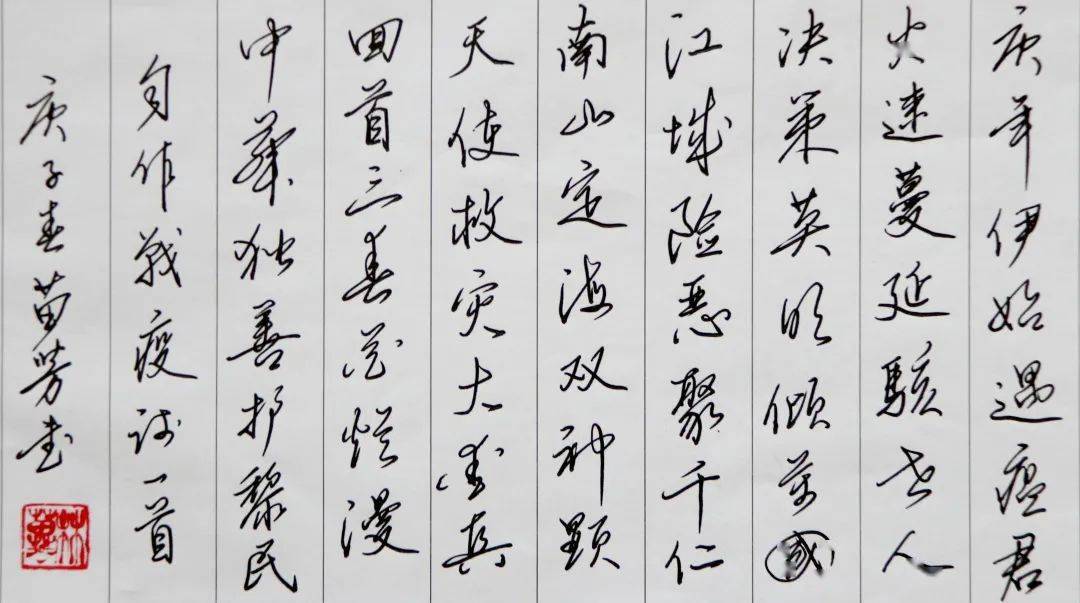 庚年伊始遇瘟君
火速蔓延骇世人
决策英明倾万国
江城险恶聚千仁
南山定海双神显
天使救灾大爱真
回首三春花烂漫
中华独善护黎民
自作战疫诗一首
庚子春苗芳书